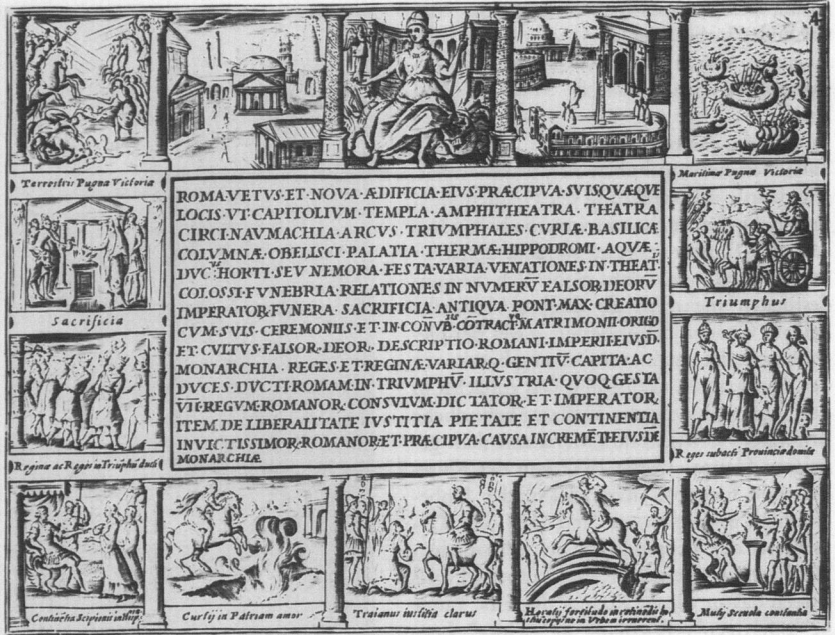 4
Terrestris Pugnæ Victoria
Maritimæ Pugnæ Victoria
ROMA·VETVS·ET·NOVA·ÆDIFICIA·EIVS·PRÆCIPVA·SVISQVÆQVE
LOCIS·VT·CAPITOLIVM·TEMPLA·AMPHITHEATRA·THEATRA
CIRCI·NAVMACHIA·ARCVS·TRIVMPHALES·CVRIÆ·BASILICÆ
COLVMNÆ·OBELISCI·PALATIA·THERMÆ·HIPPODROMI·AQVÆ
DVC:^us HORTI·SEV NEMORA·FESTA·VARIA·VENATIONES·IN·THEAT·
COLOSSI·FVNEBRIA·RELATIONES IN NVMERV̄ FALSOR·DEORV̄
IMPERATOR·FVNERA· SACRIFICIA ANTIQVA PONT·MAX·CREATIO
CVM·SVIS·CEREMONIIS·ET·IN·COÑVB·^iis CŌTRACT·^us MATRIMONII·ORIGO
ET·CVLTVS·FALSOR·DEOR· DESCRIPTIO·ROMANI·IMPERII·EIVSD̄·
MONARCHIA· REGES·ET·REGINÆ·VARIAR·Q·GENTIV̄·CAPITA·AC
DVCES·DVCTI·ROMAM·IN·TRIVMPHV̄· ILLVSTRIA·QVOQ·GESTA
V̄ĪĪ·REGVM·ROMANOR·CONSVLVM·DICTATOR·ET·IMPERATOR·
ITEM·DE LIBERALITATE IVSTITIA PIETATE ET CONTINENTIA
INVICTISSIMOR·ROMANOR·ET·PRÆCIPVA·CAVSA INCREMĒTI·EIVSDĒ
MONARCHIÆ
Sacrificia
Triumphus
Reginæ ac Reges in Triūphū ducti
Reges subacti Provinciæ domitæ
Continētia Scipionis in
Curtij in Patriam amor
Traianus iustitia clarus
Horatij fortitudo in retinēdis
Mutij Scevolæ constantia